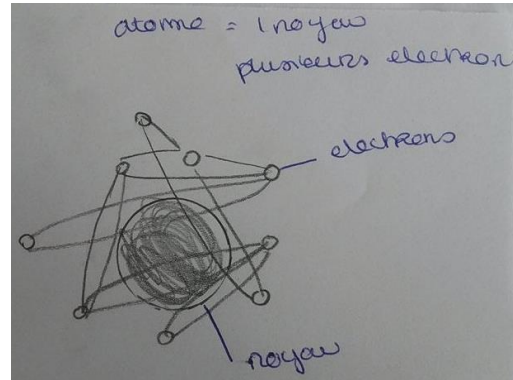 atome = 1 noyau
plusieurs electron
electrons
noyau